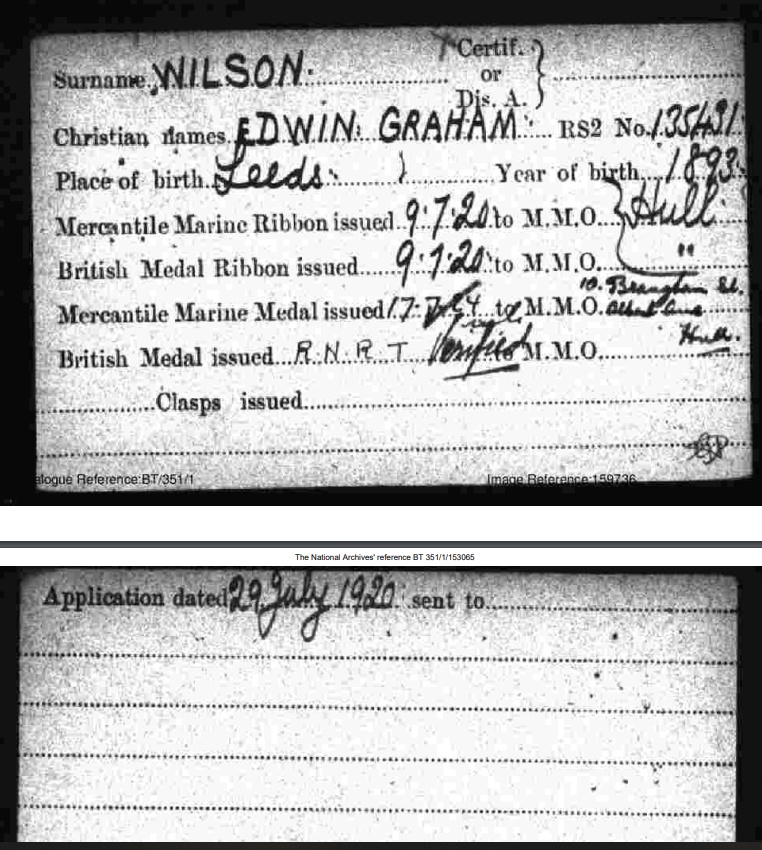 Certif.
Surname. WILSON. or
Dis. A.
Christian names. EDWIN. GRAHAM. RS2 No. 135431.
Place of birth. Leeds. Year of birth. 1893.
Mercantile Marine Ribbon issued. 9.7.20. to M.M.O. Hull
British Medal Ribbon issued. 9.7.20. to M.M.O. "
10.
Mercantile Marine Medal issued 17. to M.M.O.
British Medal issued. R.N.R.T. Verified M.M.O. Hull.
Clasps issued
alogue Reference:BT/351/1 Image Reference:159736
The National Archives' reference BT 351/1/153065
Application dated 29 July 1920. sent to